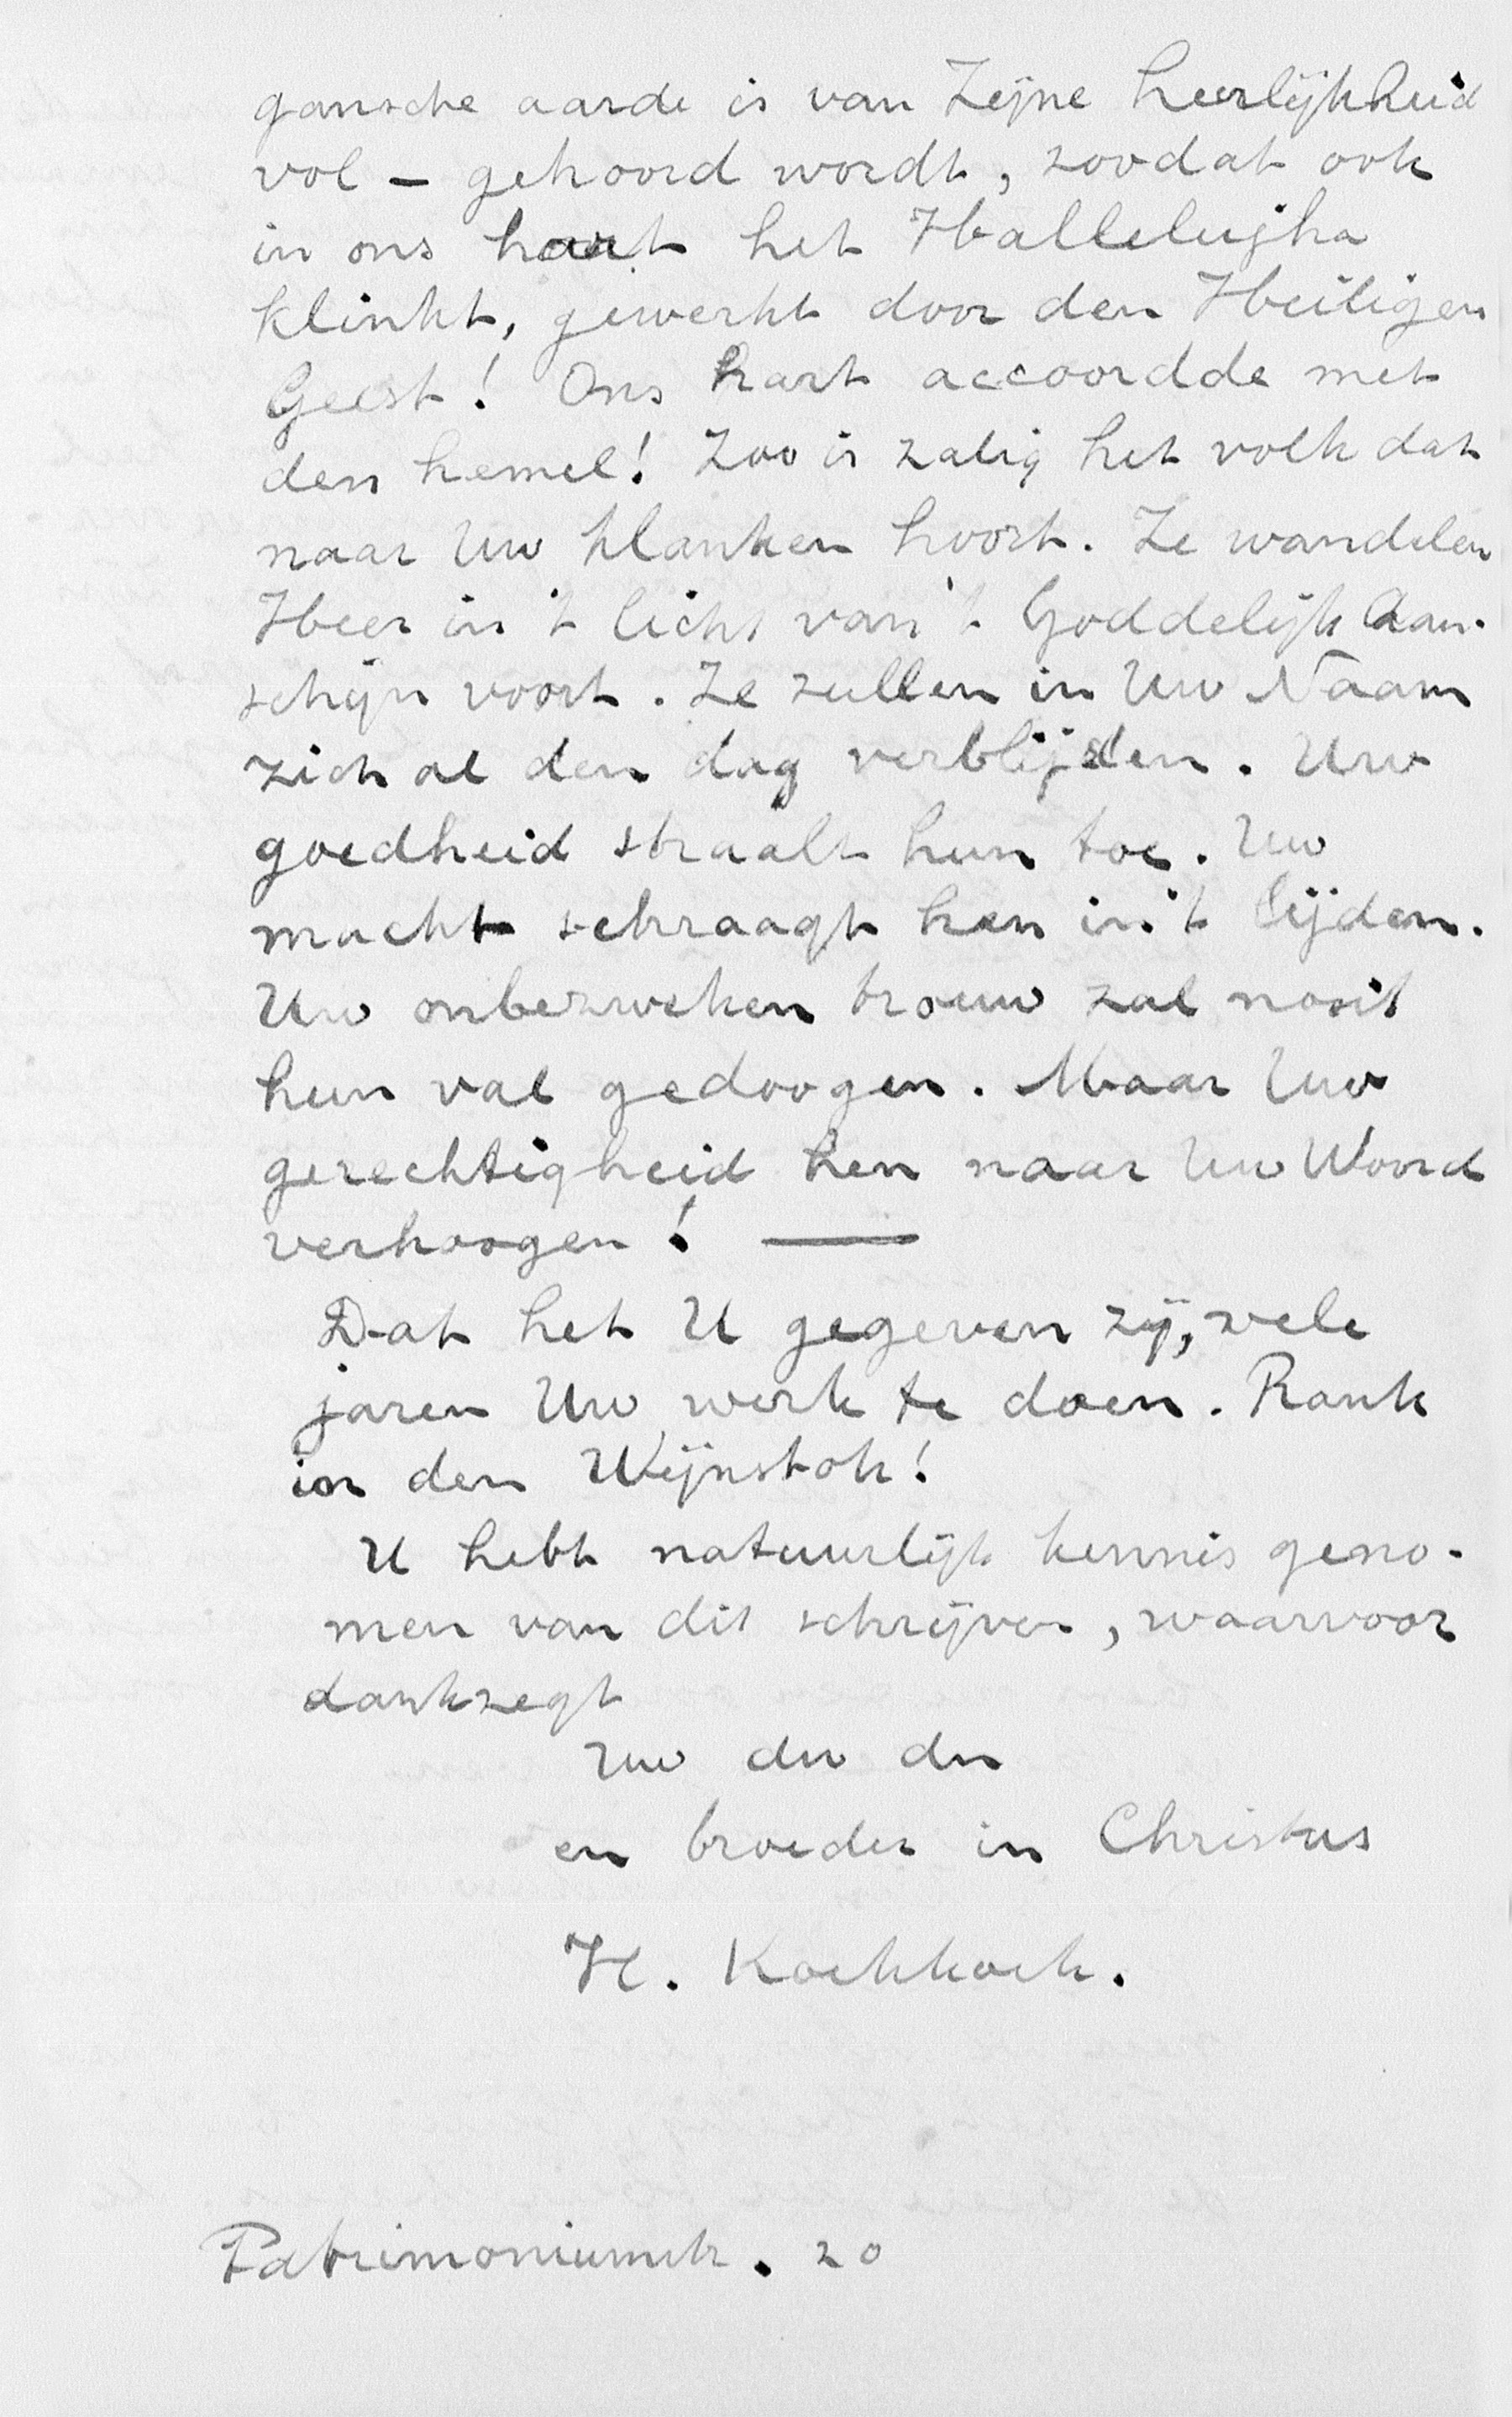 gansche aarde is van Zijne heerlijkheid
vol – gehoord wordt, zoodat ook
in ons hart het Hallelujha
klinkt, gewerkt door den Heiligen
Geest! Ons hart accoordde met
den hemel! Zoo is zalig het volk dat
naar Uw klanken hoort. Ze wandelen
Heer in 't licht van 't Goddelijk Aan-
schijn voort. Ze zullen in Uw Naam
zich al den dag verblijden. Uw
goedheid straalt hun toe. Uw
macht schraagt hen in 't lijden.
Uw onbezweken trouw zal nooit
hun val gedoogen. Maar Uw
gerechtigheid hen naar Uw Woord
verhoogen! —
Dat het U gegeven zij, vele
jaren Uw werk te doen. Rank
in den Wijnstok!
U hebt natuurlijk kennis geno-
men van dit schrijven, waarvoor
dankzegt
Uw dw dn
en broeder in Christus
H. Koekkoek.
Patrimoniumstr. 20